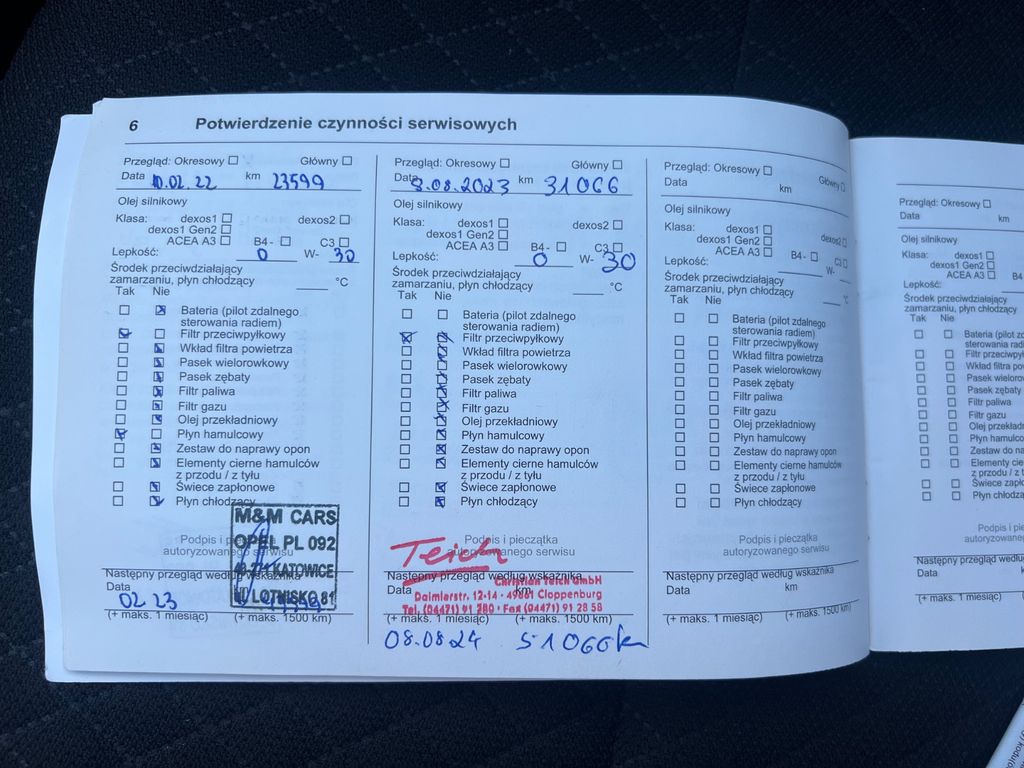 6 Potwierdzenie czynności serwisowych
Przegląd: Okresowy ☐ Główny ☐
Data 10.02.22 km 23599
Olej silnikowy
Klasa: dexos1 ☐ dexos2 ☐
dexos1 Gen2 ☐
ACEA A3 ☐ B4 - ☐ C3 ☐
Lepkość: 0 W- 30
Środek przeciwdziałający
zamarzaniu, płyn chłodzący ____ °C
Tak Nie
☐ ☒ Bateria (pilot zdalnego
sterowania radiem)
☒ ☐ Filtr przeciwpyłkowy
☐ ☒ Wkład filtra powietrza
☐ ☒ Pasek wielorowkowy
☐ ☒ Pasek zębaty
☐ ☒ Filtr paliwa
☐ ☒ Filtr gazu
☐ ☒ Olej przekładniowy
☒ ☐ Płyn hamulcowy
☐ ☒ Zestaw do naprawy opon
☐ ☒ Elementy cierne hamulców
z przodu / z tyłu
☐ ☒ Świece zapłonowe
☐ ☒ Płyn chłodzący
M&M CARS
OPEL PL 092
KATOWICE
LOTNISKO 81
Podpis i pieczątka
autoryzowanego serwisu
Następny przegląd według wskaźnika
Data 02 23
(+ maks. 1 miesiąc) (+ maks. 1500 km)
Przegląd: Okresowy ☐ Główny ☐
Data 8.08.2023 km 31066
Olej silnikowy
Klasa: dexos1 ☐ dexos2 ☐
dexos1 Gen2 ☐
ACEA A3 ☐ B4 - ☐ C3 ☐
Lepkość: 0 W- 30
Środek przeciwdziałający
zamarzaniu, płyn chłodzący ____ °C
Tak Nie
☐ ☐ Bateria (pilot zdalnego
sterowania radiem)
☒ ☒ Filtr przeciwpyłkowy
☐ ☒ Wkład filtra powietrza
☐ ☒ Pasek wielorowkowy
☐ ☒ Pasek zębaty
☐ ☒ Filtr paliwa
☐ ☒ Filtr gazu
☐ ☒ Olej przekładniowy
☐ ☒ Płyn hamulcowy
☐ ☒ Zestaw do naprawy opon
☐ ☒ Elementy cierne hamulców
z przodu / z tyłu
☐ ☒ Świece zapłonowe
☐ ☒ Płyn chłodzący
Podpis i pieczątka
autoryzowanego serwisu
Teich
Następny przegląd według wskaźnika
Christian Teich GmbH
Data km
Daimlerstr. 12-14 · 49661 Cloppenburg
Tel. (04471) 91 280 · Fax (04471) 91 28 58
(+ maks. 1 miesiąc) (+ maks. 1500 km)
08.08.24 51066 km
Przegląd: Okresowy ☐ Główny ☐
Data km
Olej silnikowy
Klasa: dexos1 ☐ dexos2 ☐
dexos1 Gen2 ☐
ACEA A3 ☐ B4 - ☐ C3 ☐
Lepkość: ____ W-
Środek przeciwdziałający
zamarzaniu, płyn chłodzący ____ °C
Tak Nie
☐ ☐ Bateria (pilot zdalnego
sterowania radiem)
☐ ☐ Filtr przeciwpyłkowy
☐ ☐ Wkład filtra powietrza
☐ ☐ Pasek wielorowkowy
☐ ☐ Pasek zębaty
☐ ☐ Filtr paliwa
☐ ☐ Filtr gazu
☐ ☐ Olej przekładniowy
☐ ☐ Płyn hamulcowy
☐ ☐ Zestaw do naprawy opon
☐ ☐ Elementy cierne hamulców
z przodu / z tyłu
☐ ☐ Świece zapłonowe
☐ ☐ Płyn chłodzący
Podpis i pieczątka
autoryzowanego serwisu
Następny przegląd według wskaźnika
Data km
(+ maks. 1 miesiąc) (+ maks. 1500 km)
Przegląd: Okresowy ☐
Data km
Olej silnikowy
Klasa: dexos1 ☐
dexos1 Gen2 ☐
ACEA A3 ☐ B4
Lepkość:
Środek przeciwdziałający
zamarzaniu, płyn chłodzący
Tak Nie
☐ ☐ Bateria (pilot z
sterowania radi
☐ ☐ Filtr przeciwpył
☐ ☐ Wkład filtra po
☐ ☐ Pasek wieloro
☐ ☐ Pasek zębaty
☐ ☐ Filtr paliwa
☐ ☐ Filtr gazu
☐ ☐ Olej przekładn
☐ ☐ Płyn hamulco
☐ ☐ Zestaw do na
☐ ☐ Elementy cier
z przodu / z t
☐ ☐ Świece zapło
☐ ☐ Płyn chłodzą
Podpis i p
autoryzowane
Następny przegląd według
Data
(+ maks. 1 miesiąc) (+